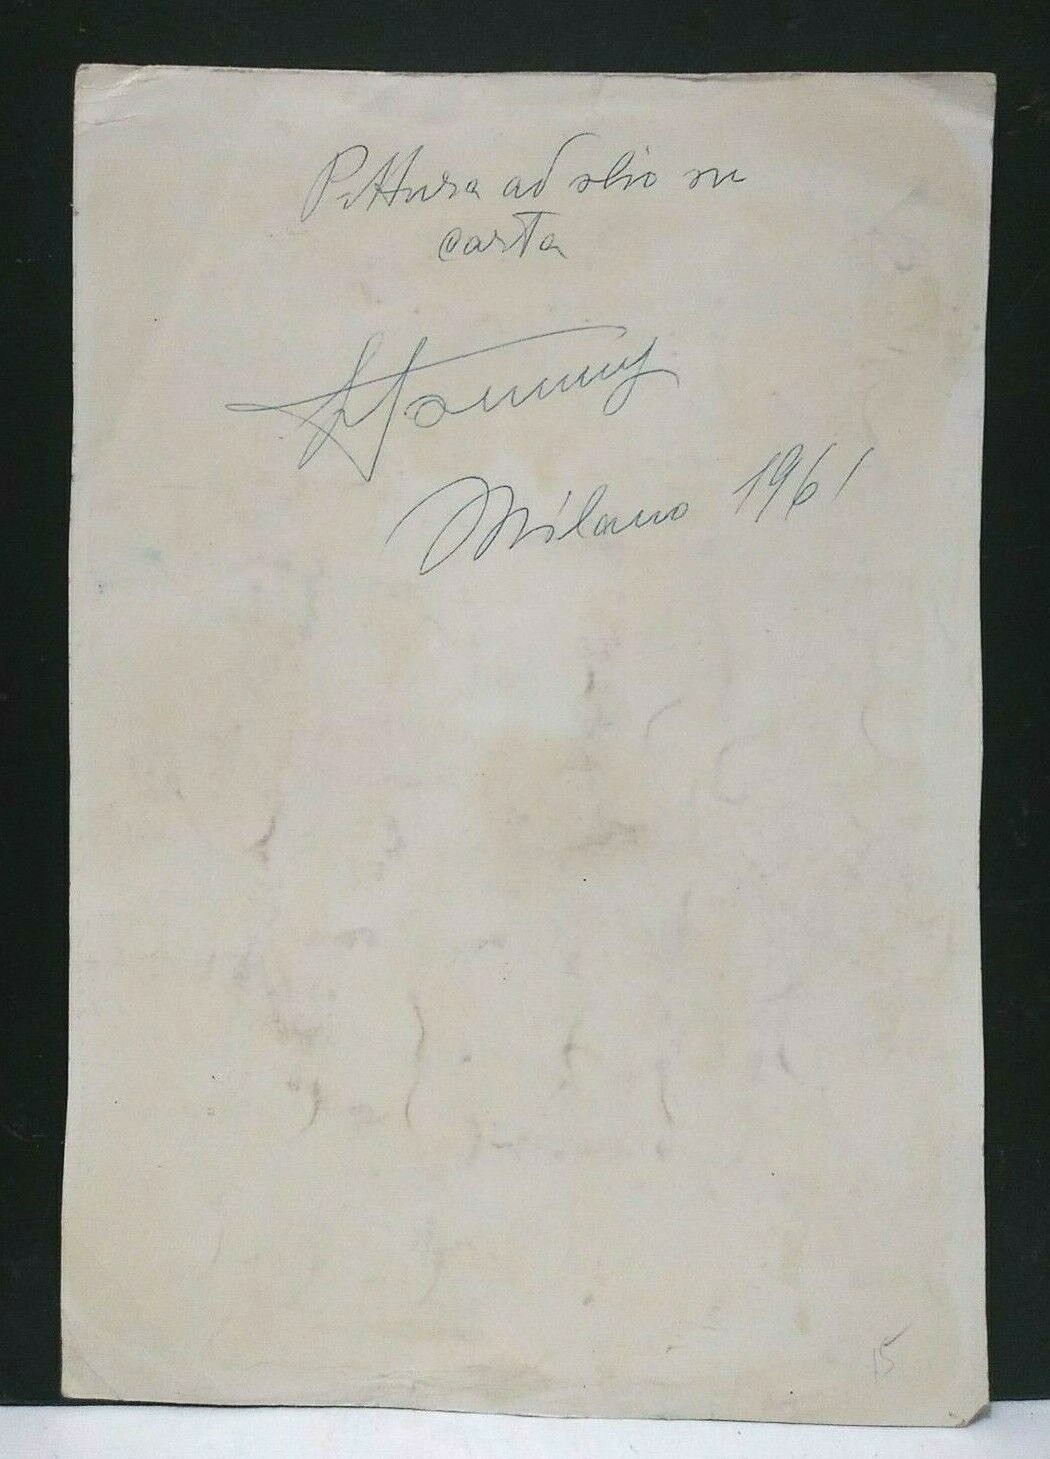 Pittura ad olio su
carta
Milano 1961
15